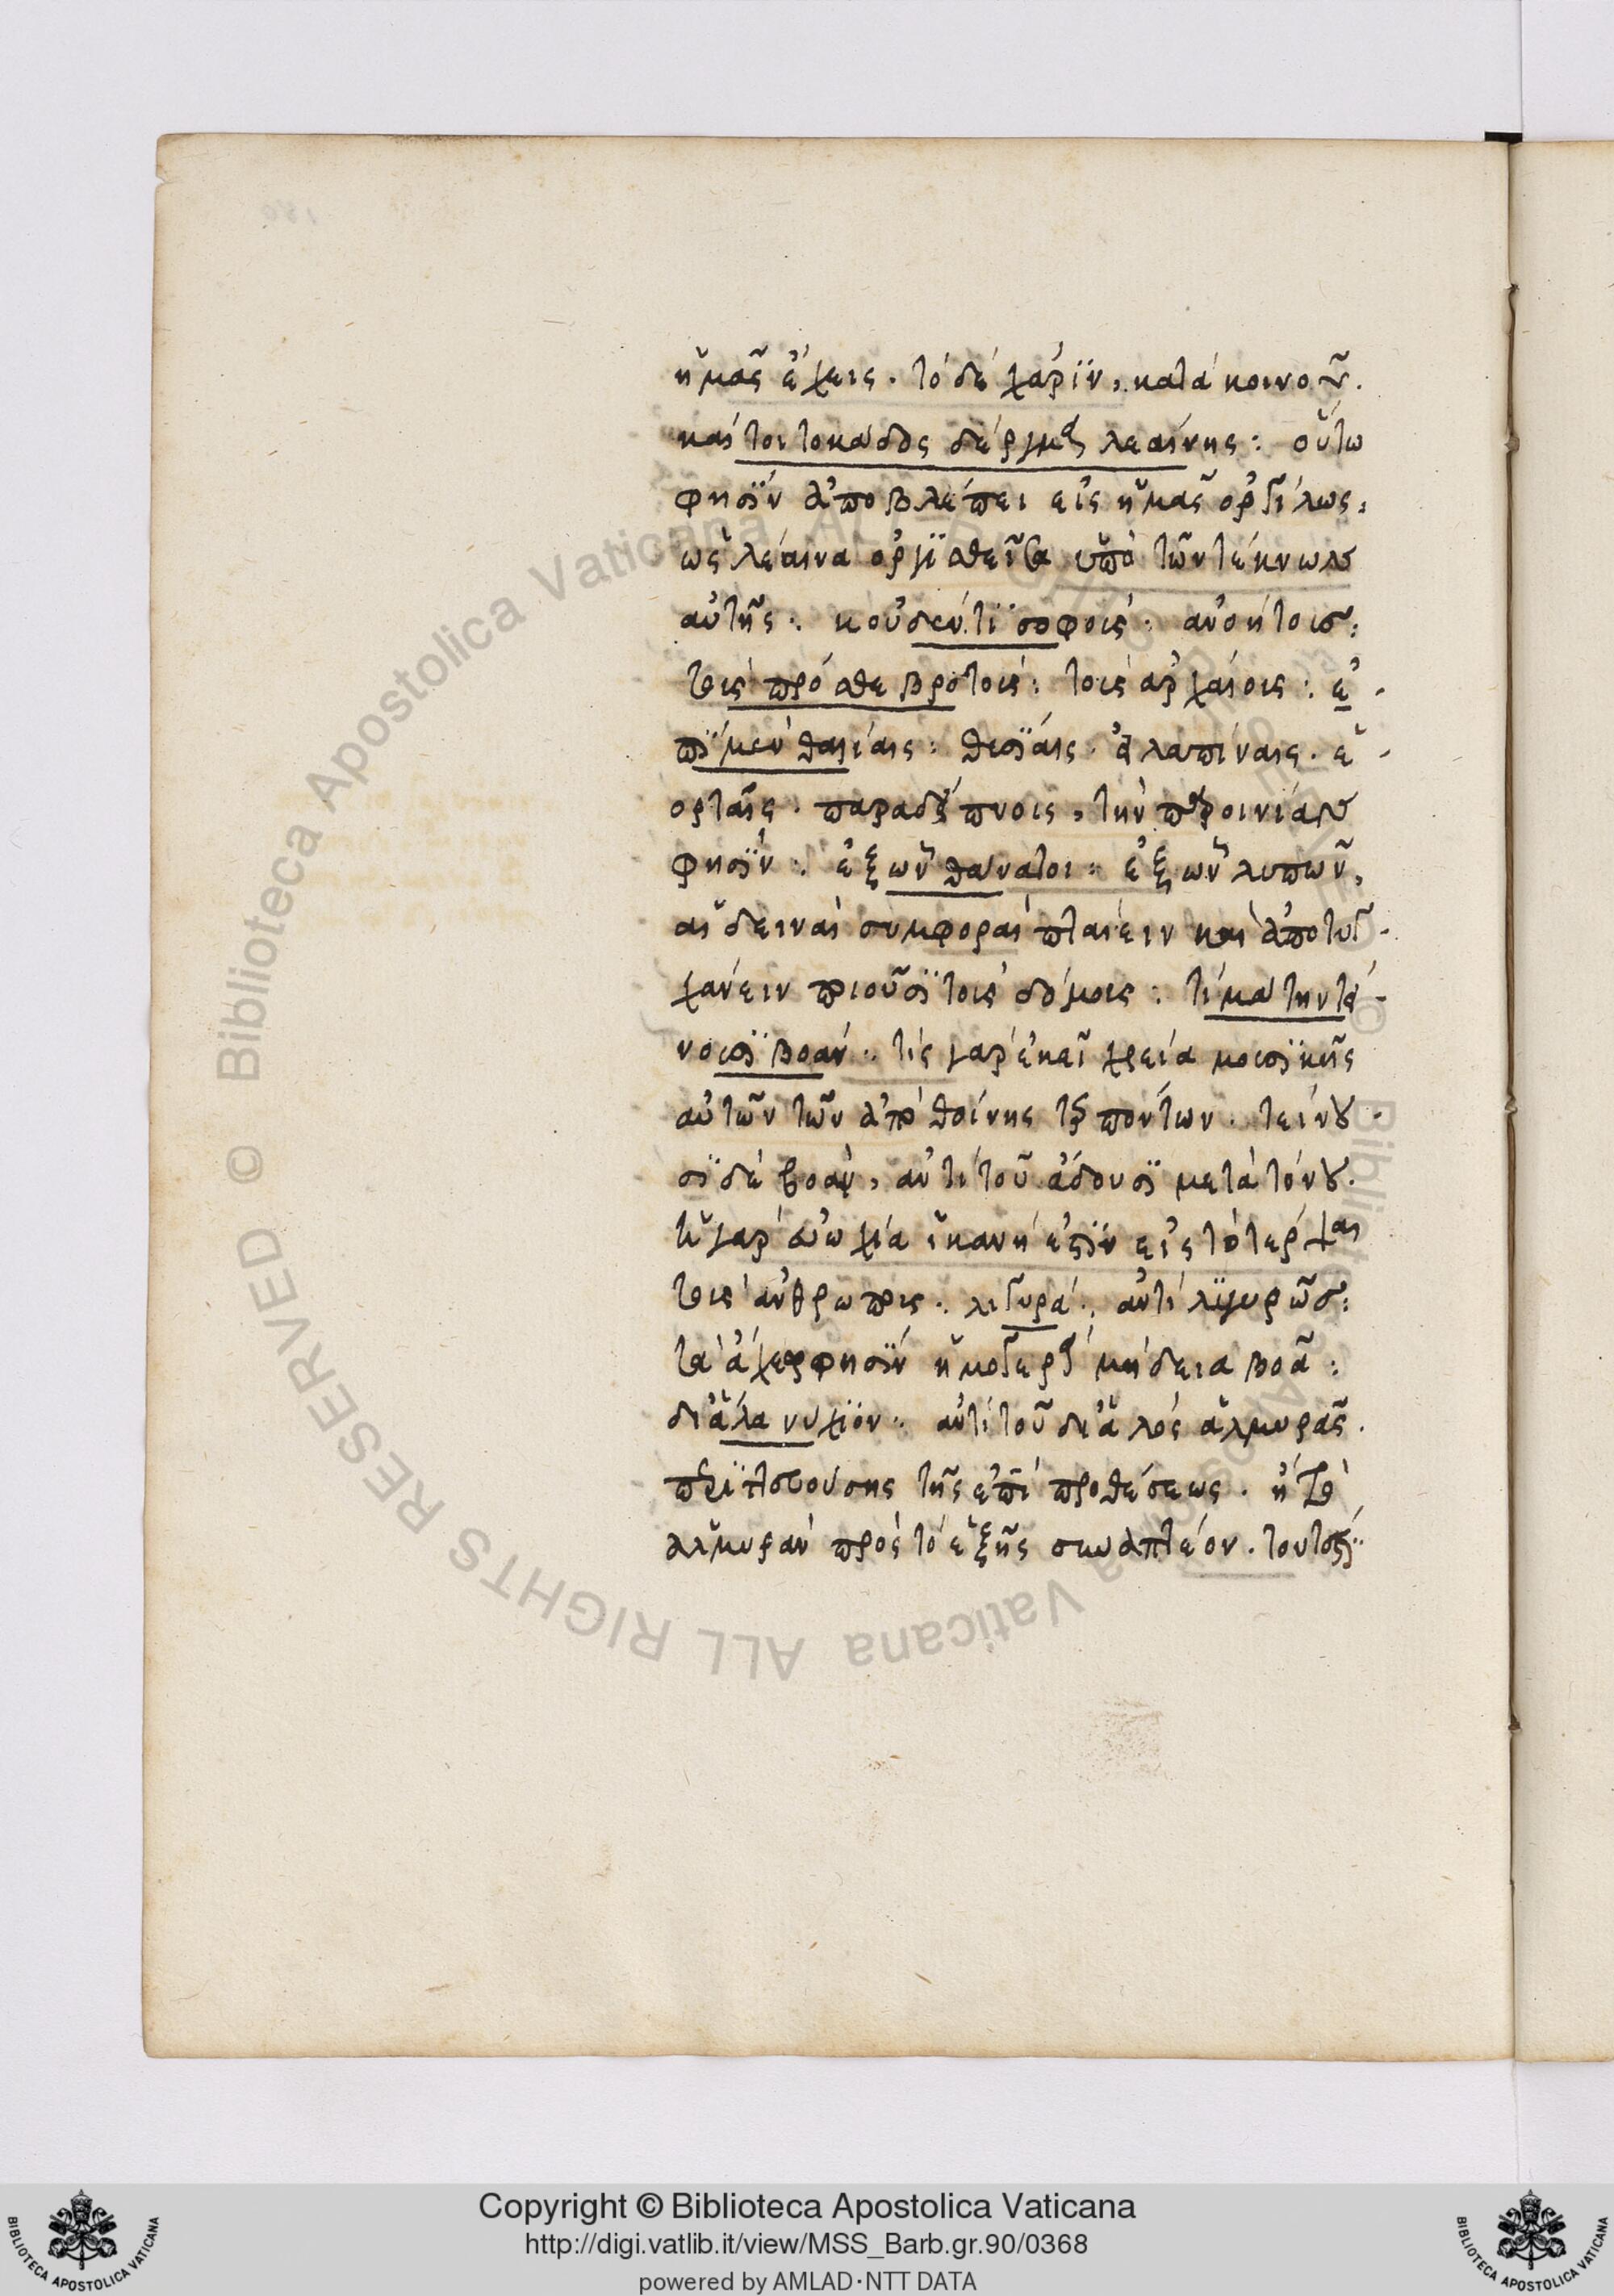 ἡμᾶς ἔχεις. τὸ δὲ χάριν, κατὰ κοινοῦ.
καίτοι τοκάδος δέργμα λεαίνης: οὕτω
φησὶν ἀποβλέπει εἰς ἡμᾶς ὀργίλως,
ὡς λέαινα ὀργισθεῖσα ὑπὸ τῶν τέκνων
αὐτῆς: κοὐδέν τι σοφοὺς: ἀνοήτους:
τοὺς πρόσθε βροτοὺς: τοὺς ἀρχαίους: ἐ-
πὶ μὲν θαλίαις: θυσίαις. εἰλαπίναις. ἑ-
ορταῖς. παρὰ δείπνοις, τὴν παροινίαν
φησίν: ἐξ ὧν θάνατοι: ἐξ ὧν λυπῶν,
αἱ δειναὶ συμφοραὶ πταίειν καὶ ἀποτυγ-
χάνειν ποιοῦσι τοὺς δόμους: τί μάτην τεί-
νουσι βοάν: τίς γὰρ ἐκεῖ χρεία μουσικῆς
αὐτῶν τῶν ἀπὸ θοίνης τερπόντων. τείνου-
σι δὲ βοὰν, ἀντὶ τοῦ ἄδουσι μετὰ τόνου.
ἡ γὰρ εὐωχία ἱκανή ἐστιν εἰς τὸ τέρψαι
τοὺς ἀνθρώπους. λιγυρὰ: ἀντὶ λιγυρῶς:
τὰ ἄχεα φησὶν ἡ μογερὰ μήδεια βοᾶ:
δι' ἅλα νύχιον: ἀντὶ τοῦ δι' ἁλὸς ἁλμυρᾶς.
περιττευούσης τῆς ἐπὶ προθέσεως. ἢ τὸ
ἁλμυρὰν πρὸς τὸ ἑξῆς συναπτέον. τουτέστι